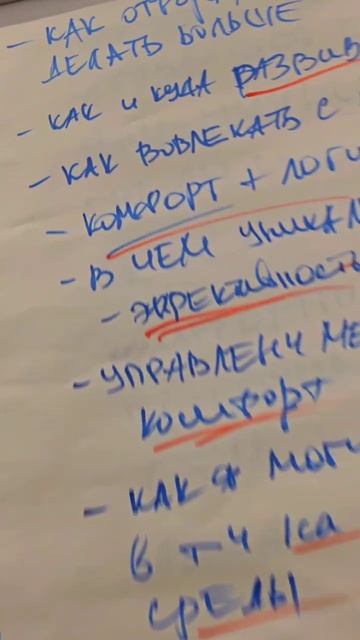 - КАК
ДЕЛАТЬ БОЛЬШЕ
- КАК И КУДА РАЗВИВ
- КАК ВОВЛЕКАТЬ С
- КОМФОРТ + ЛОГИ
- В ЧЕМ УНИКАЛ
- ЭФФЕКТИВНОСТЬ
- УПРАВЛЕНЧ МЕ
КОМФОРТ
- КАК Я МОГ
В Т Ч
СРЕДЫ